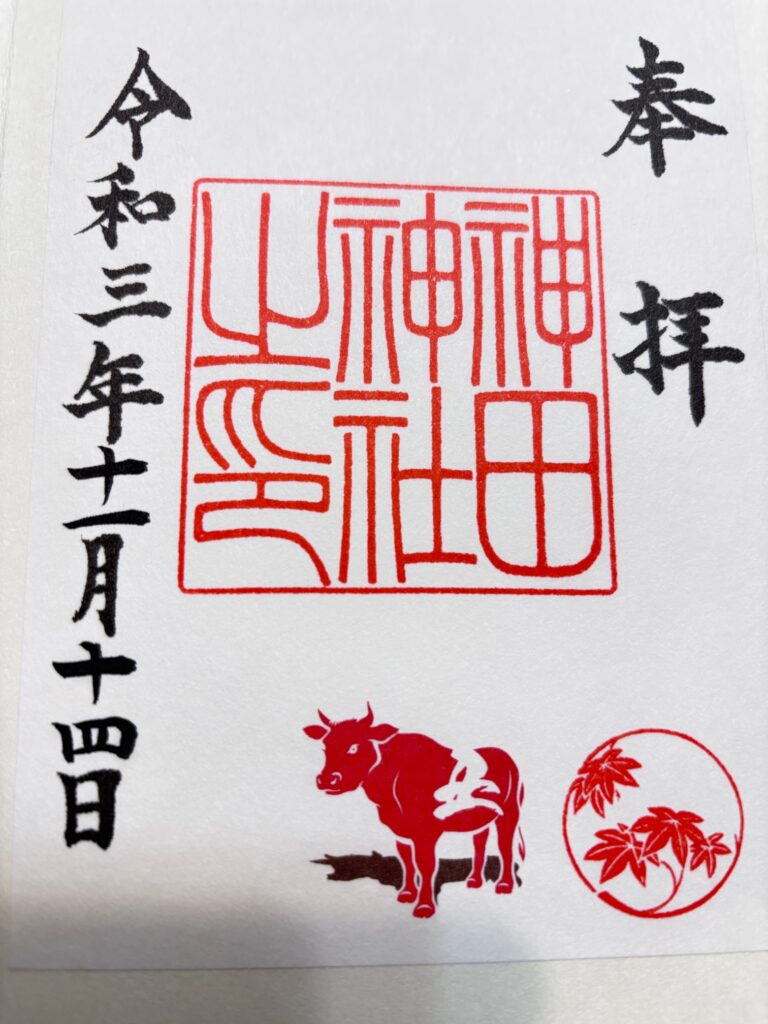 奉拝
神田
神社
之印
丑
令和三年十一月十四日